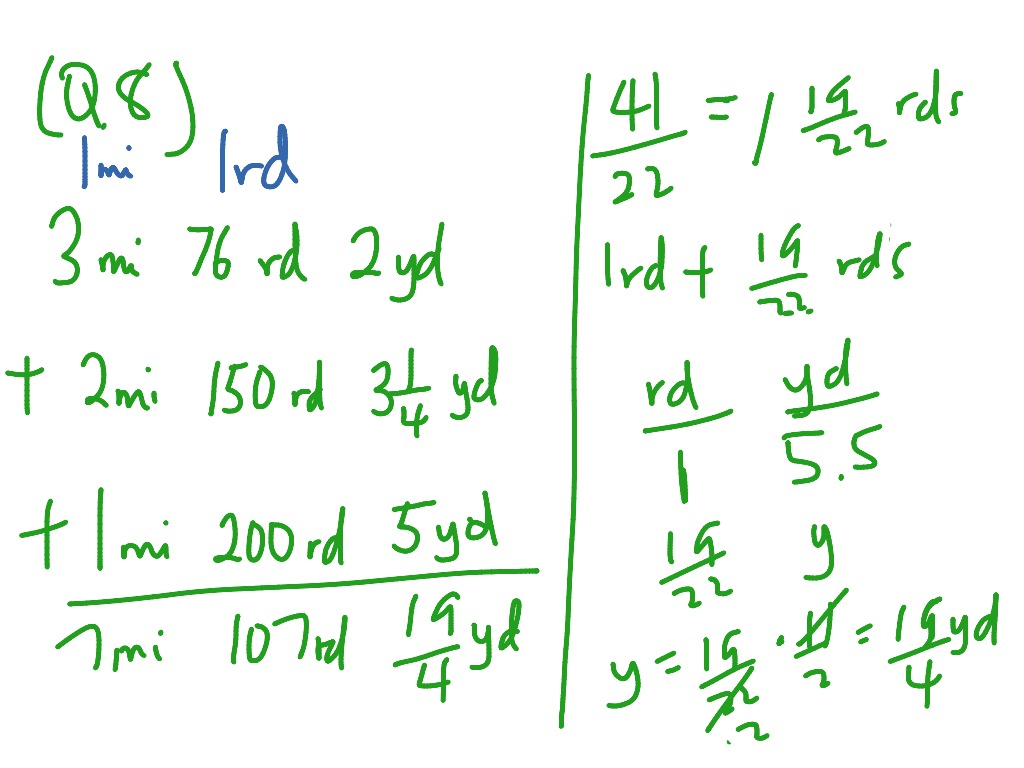 (Q8)
1mi 1rd
3 mi 76 rd 2yd
+ 2mi 150 rd 3 1/4 yd
+ 1mi 200 rd 5yd
7mi 107rd 19/4 yd
41/22 = 1 19/22 rds
1rd + 19/22 rds
rd yd
1 5.5
19/22 y
y = 19/22 · 11/2 = 19/4 yd
2